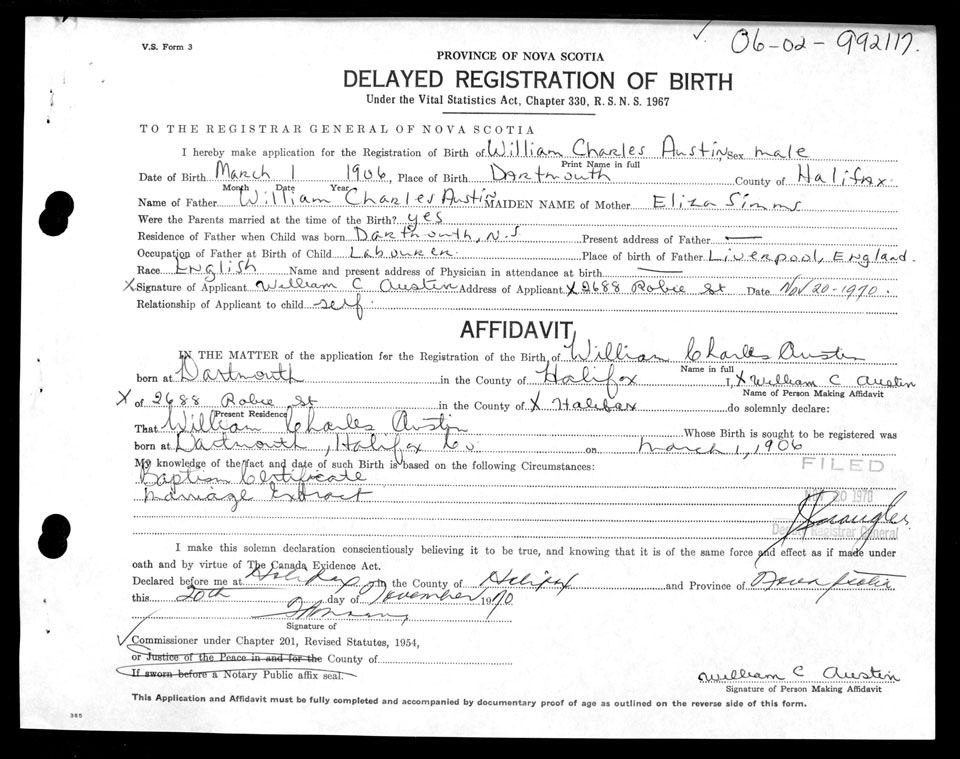 ✓. 06-02-992117.
V.S. Form 3
PROVINCE OF NOVA SCOTIA
DELAYED REGISTRATION OF BIRTH
Under the Vital Statistics Act, Chapter 330, R.S.N.S. 1967
TO THE REGISTRAR GENERAL OF NOVA SCOTIA
I hereby make application for the Registration of Birth of William Charles Austin, Sex male
Print Name in full
Date of Birth March 1 1906, Place of Birth Dartmouth County of Halifax.
Month Date Year
Name of Father William Charles Austin MAIDEN NAME of Mother Eliza Simms
Were the Parents married at the time of the Birth? yes
Residence of Father when Child was born Dartmouth, N.S Present address of Father —
Occupation of Father at Birth of Child Labourer. Place of birth of Father Liverpool, England.
Race English Name and present address of Physician in attendance at birth —
X Signature of Applicant William C Austin Address of Applicant X 2688 Robie St Date Nov 20-1970.
Relationship of Applicant to child self.
AFFIDAVIT
IN THE MATTER of the application for the Registration of the Birth of William Charles Austin
Name in full
born at Dartmouth in the County of Halifax I, X William C Austin
Name of Person Making Affidavit
X of 2688 Robie St in the County of X Halifax do solemnly declare:
Present Residence
That William Charles Austin Whose Birth is sought to be registered was
born at Dartmouth, Halifax Co. on March 1, 1906
My knowledge of the fact and date of such Birth is based on the following Circumstances:
FILED
Baptism Certificate
Marriage Extract
20 1970
Deputy Registrar General
I make this solemn declaration conscientiously believing it to be true, and knowing that it is of the same force and effect as if made under
oath and by virtue of The Canada Evidence Act.
Declared before me at Halifax in the County of Halifax and Province of Nova Scotia
this 20th day of November 1970
Signature of
✓ Commissioner under Chapter 201, Revised Statutes, 1954,
or Justice of the Peace in and for the County of
If sworn before a Notary Public affix seal.
William C Austin
Signature of Person Making Affidavit
This Application and Affidavit must be fully completed and accompanied by documentary proof of age as outlined on the reverse side of this form.
385